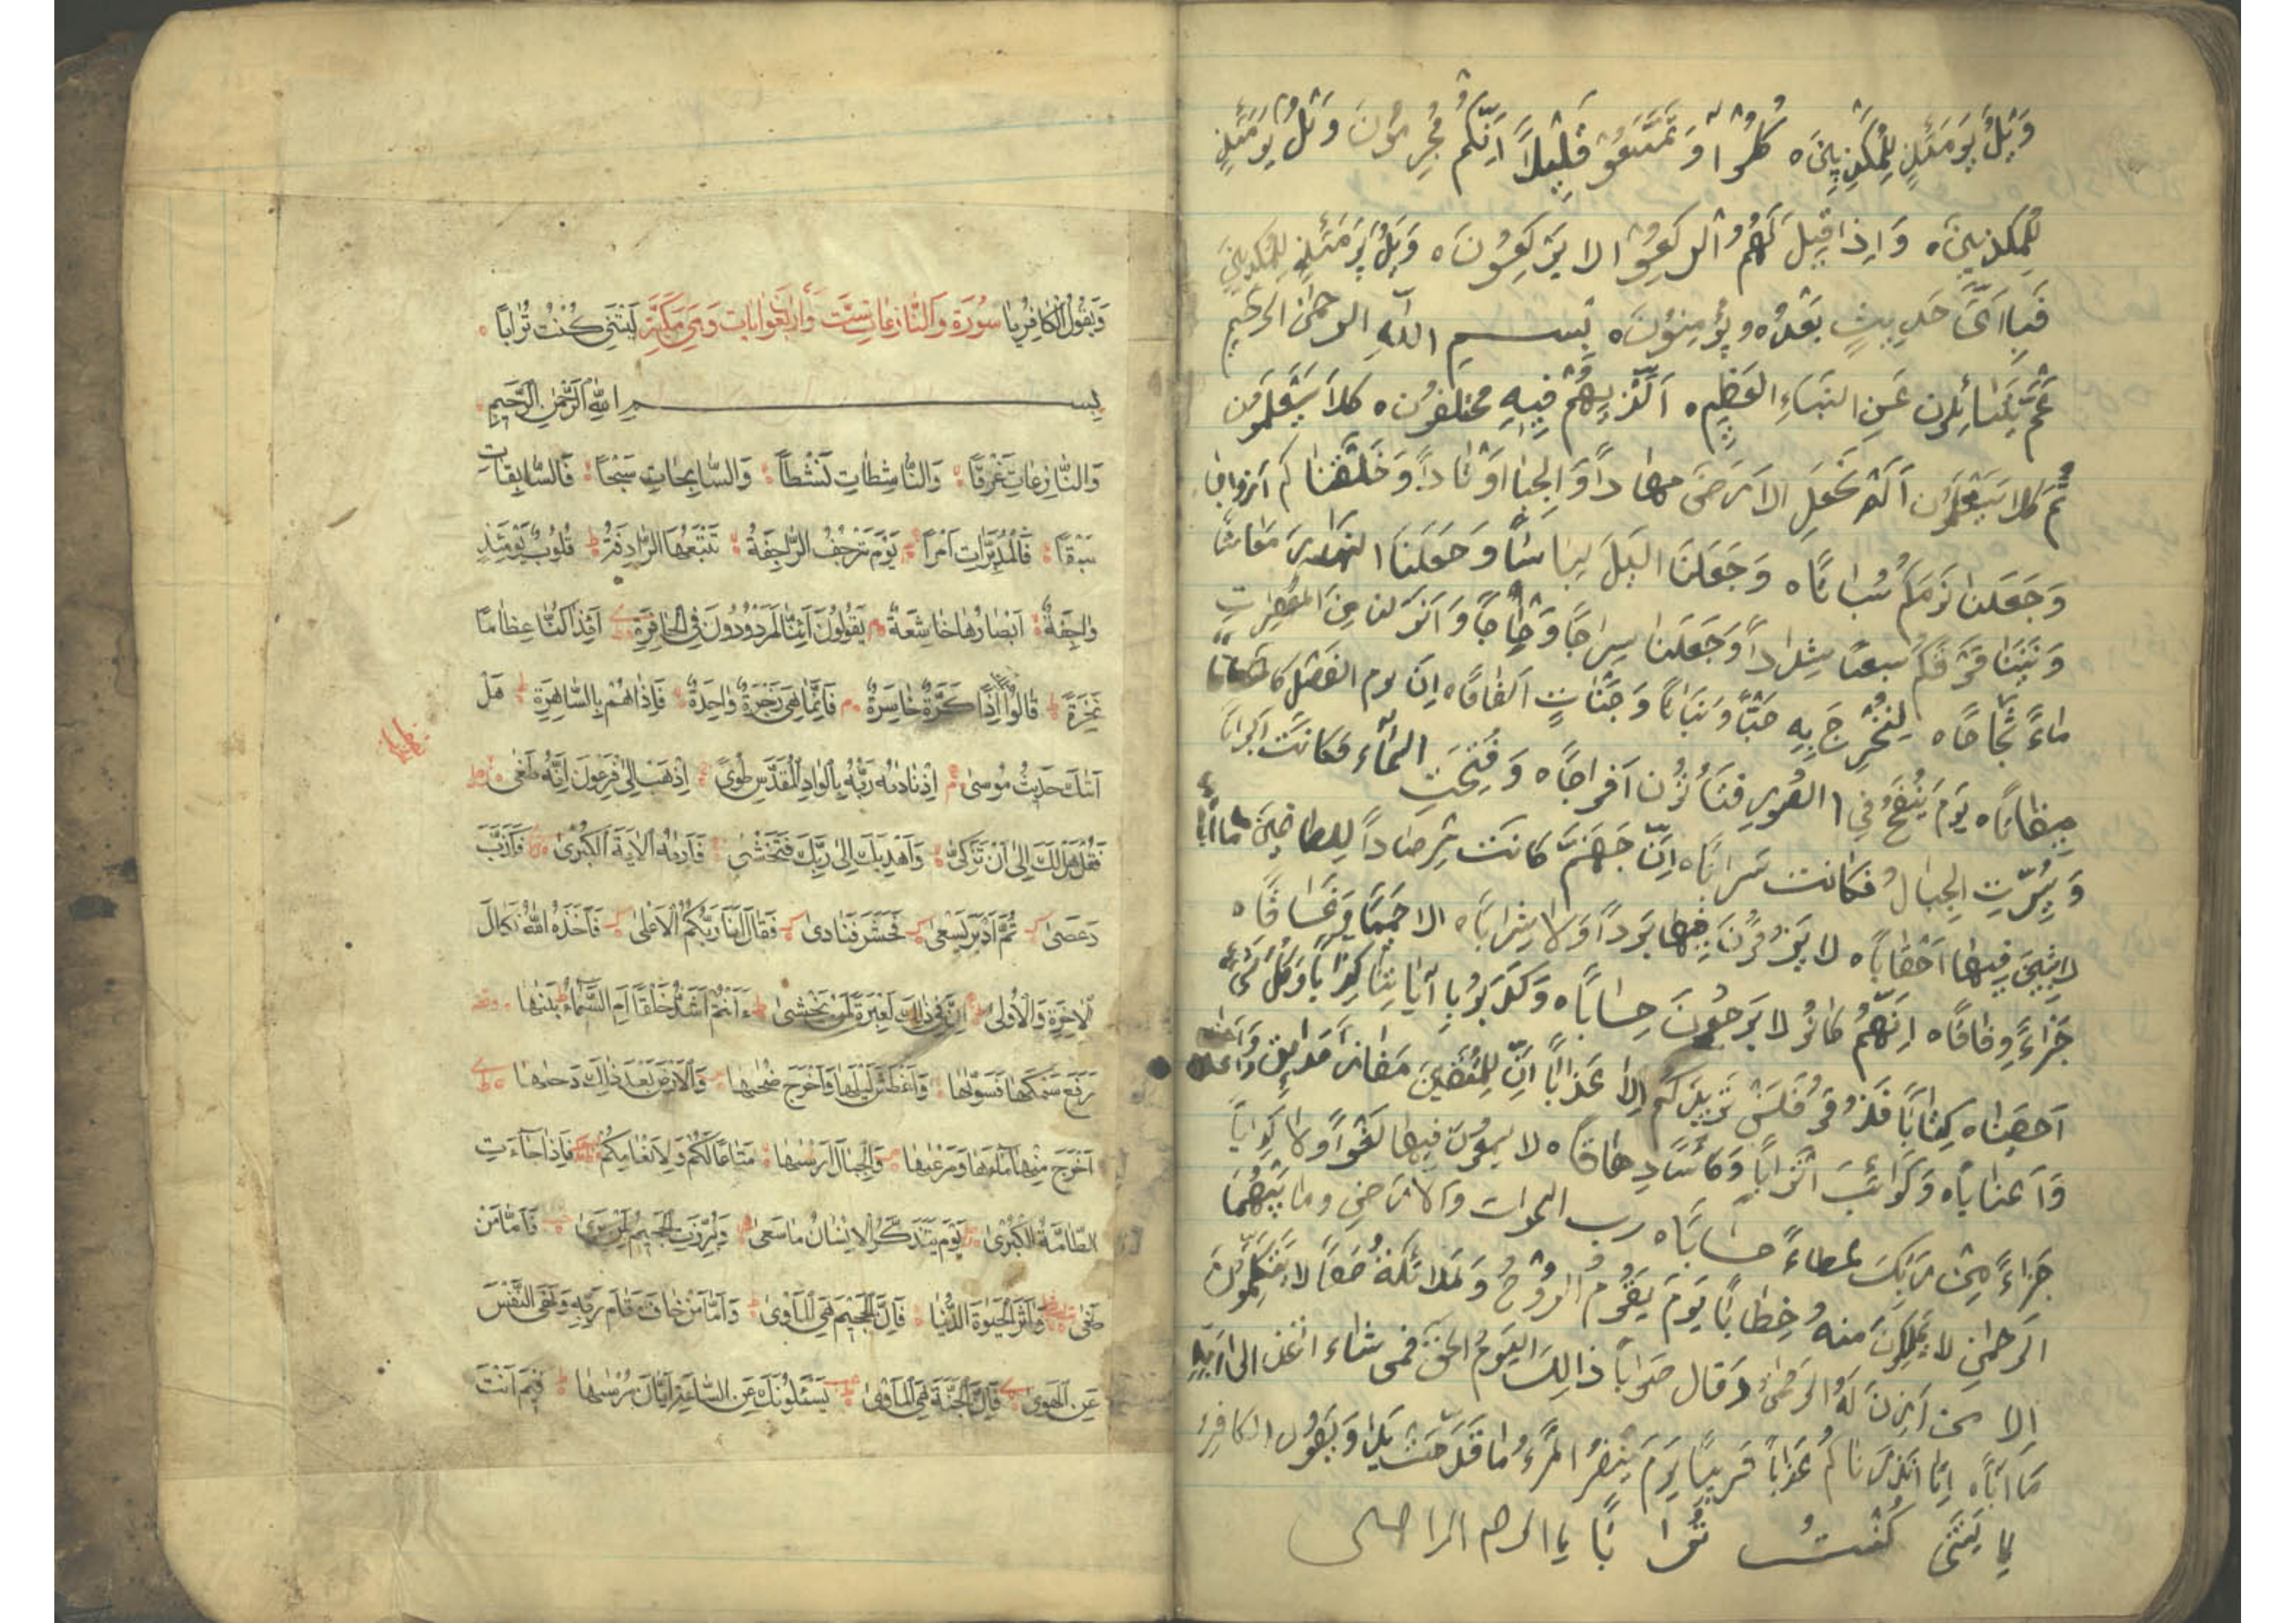 وَيْلٌ يَوْمَئِذٍ لِلْمُكَذِّبِينَ ه كُلُوْا وَتَمَتَّعُوْ قَلِيْلاً اِنَّكُمْ مُجْرِمُونَ وَيْلٌ يَوْمَئِذٍ
لِلْمُكَذِبِينَ ه وَاِذا قِيلَ لَهُمُ ارْكَعِعُوْا لا يَرْكَعِعُونَ ه وَيْلٌ يَوْمَئِذٍ لِلْمُكَذِبِينَ
فَبِاَىِّ حَدِيثٍ بَعْدَهُ يُؤْمِنوُنَ ه بِسمِ اللهِ الرحمٰن الرحيم
عَمَّ يَتَسٰائَلون عَنِ النَبَاءِ العَظِيمِ ه اَلَّذِيهُمْ فِيهِ مختلفون ه كلاَ سَيَعْلَمَون
ثُمَّ كَلا سَيَعْلَمَون اَلَمْ نَجْعَلِ الاَرضَ مِهاداً وَالجِبٰا اَوْتاداً وَخَلَقْنٰاكم اَزواجا
وَجَعَلنٰا نَومَكُمْ سُباتًا ه وَجَعَلنَا اليَلَ لِبٰاسًا وَجَعَلنَا النهَارَ مَعٰاشا
وَبَنَيْنٰا فَوْقَكُمْ سَبعًا شِداداً وَجَعَلنٰا سِراجًا وَهّٰاجًا وَاَنزَلنا مِنَ المُعْصِراتِ
مٰاءً ثَجّاجًا ه لِنُخْرِجَ بِهِ حَبًّا وَنَبٰاتًا وَجَنّٰاتٍ اَلفٰافًا ه اِنَ يوم الفَصْلِ كانَ
مِيقٰاتًا ه يَومَ يُنْفَخُ فِي الصُورِ فَتَأْتُون اَفواجًا ه وَفُتِحَتِ السَّمٰاء فَكانَت اَبوابًا
وَسُيِّرَتِ الجِبٰالُ فكٰانت سَرابًا ه اِنَّ جَهَنَّمَ كانَت مِرصٰاداً لِلطاغينَ مٰاٰبًا
لابِثِينَ فِيهٰا اَحْقٰابًا ه لا يَذُوقُونَ فِيهٰا بَرداً وَلا شَرابًا ه الا حَمِيمًا وَغَسّٰاقًا ه
جَزاءً وِفٰاقًا ه اِنَهُمْ كٰانُوا لا يَرجُونَ حِسٰابًا ه وَكَذَبُوا بِاٰيٰاتِنٰا كِذّابًا وَكُلَ شَىءٍ
اَحصَينٰاه كِتٰابًا فَذُوقُو فَلَنْ نَزِيدَكُم اِلا عَذٰابًا اِنَّ لِلمُتَقِينَ مَفٰازاً حَدائِقَ
وَاَعنابًا ه وَكَواعِبَ اَتْرابًا وَكَأْسًا دِهٰاقًا ه لا يسمعونَ فِيهٰا لَغْواً ولا كِذّابًا
جَزاءً مِنْ رَبِكَ عَطاءً حِسابًا ه رب السموات والاَرضِ وما بَيْنَهُمَا
الرحمٰنِ لا يَملِكونَ منهُ خِطابًا يَومَ يَقُومُ الرُوْحُ وَمَلائكةُ صَفًا لا يَتَكَلَّمُونَ
اِلا مَن اَذِنَ لَهُ الرحمٰنُ وَقال صَوابًا ذالِكَ اليَومُ الحقّ فمن شٰاءَ اتخذ الى رَبِّهِ
مَاٰبًا ه اِنّا انذرناكُم عَذابًا قَريبًا يَومَ يَنْظُرُ المَرْءُ مٰا قَدَّمَتْ يَدٰاه وَيَقُول الكافِرُ
يا لَيتَنى كُنْتُ تُرابًا يا ارحم الراحمين
وَيَقُولُ الْكافِرُ يا سُورَة وَالنّازِعات سِتّ وَاَرْبَعُوْا ايات وَهِىَ مَكِيَّة لَيْتَنِى كُنْتُ تُرٰاباً
بِسْمِ اللهِ الرَّحْمٰنِ الرَّحيمِ
وَالنّٰازِعاتِ غَرْقًا وَالنّٰاشِطاتِ نَشْطاً وَالسّٰابِحاتِ سَبْحًا فَالسّٰابِقاتِ
سَبْقًا فَالْمُدَبِّراتِ اَمْراً يَوْمَ تَرْجُفُ الرّٰاجِفَةُ تَتْبَعُهَا الرّادِفَةُ قُلُوبٌ يَوْمَئِذٍ
وٰاجِفَةٌ اَبْصٰارُهٰا خٰاشِعَةٌ يَقُولُونَ اَئِنّٰا لَمَرْدُودُونَ فِى الْحٰافِرَةِ اَئِذٰا كُنّٰا عِظٰامًا
نَخِرَةً قٰالُوا اِذًا كَرَّةٌ خٰاسِرَةٌ فَاِنَّمٰا هِىَ زَجْرَةٌ وٰاحِدَةٌ فَاِذٰاهُمْ بِالسّٰاهِرَةِ هَلْ
اَتٰىكَ حَديثُ مُوسىٰ اِذْنٰادٰىهُ رَبُّهُ بِالْوٰادِ الْمُقَدَّسِ طُوىً اِذْهَبْ اِلىٰ فِرْعَوْنَ اِنَّهُ طَغىٰ
فَقُلْ هَلْ لَكَ اِلىٰ اَنْ تَزَكّىٰ وَاَهْدِيَكَ اِلىٰ رَبِّكَ فَتَخْشىٰ فَاَرٰىهُ الْاٰيَةَ الْكُبْرىٰ فَكَذَّبَ
وَعَصىٰ ثُمَّ اَدْبَرَ يَسْعىٰ فَحَشَرَ فَنٰادىٰ فَقٰالَ اَنَا رَبُّكُمُ الْاَعْلىٰ فَاَخَذَهُ اللهُ نَكٰالَ
الْاٰخِرَةِ وَالْاُولىٰ اِنَّ فى ذٰلِكَ لَعِبْرَةً لِمَنْ يَخْشىٰ ءَاَنْتُمْ اَشَدُّ خَلْقًا اَمِ السَّمٰاءُ بَنٰىهٰا
رَفَعَ سَمْكَهٰا فَسَوّٰىهٰا وَاَغْطَشَ لَيْلَهٰا وَاَخْرَجَ ضُحٰىهٰا وَالْاَرْضَ بَعْدَ ذٰلِكَ دَحٰىهٰا
اَخْرَجَ مِنْهٰا مٰاءَهٰا وَمَرْعٰىهٰا وَالْجِبٰالَ اَرْسٰىهٰا مَتٰاعًا لَكُمْ وَلِاَنْعٰامِكُمْ فَاِذٰا جٰآءَتِ
الطّٰامَّةُ الْكُبْرىٰ يَوْمَ يَتَذَكَّرُ الْاِنْسٰانُ مٰا سَعىٰ وَبُرِّزَتِ الْجَحيمُ لِمَنْ يَرىٰ فَاَمّٰا مَنْ
طَغىٰ وَاٰثَرَ الْحَيٰوةَ الدُّنْيٰا فَاِنَّ الْجَحيمَ هِىَ الْمَأْوىٰ وَاَمّٰا مَنْ خٰافَ مَقٰامَ رَبِّهِ وَنَهَى النَّفْسَ
عَنِ الْهَوىٰ فَاِنَّ الْجَنَّةَ هِىَ الْمَأْوىٰ يَسْئَلُونَكَ عَنِ السّٰاعَةِ اَيّٰانَ مُرْسٰىهٰا فيمَ اَنْتَ